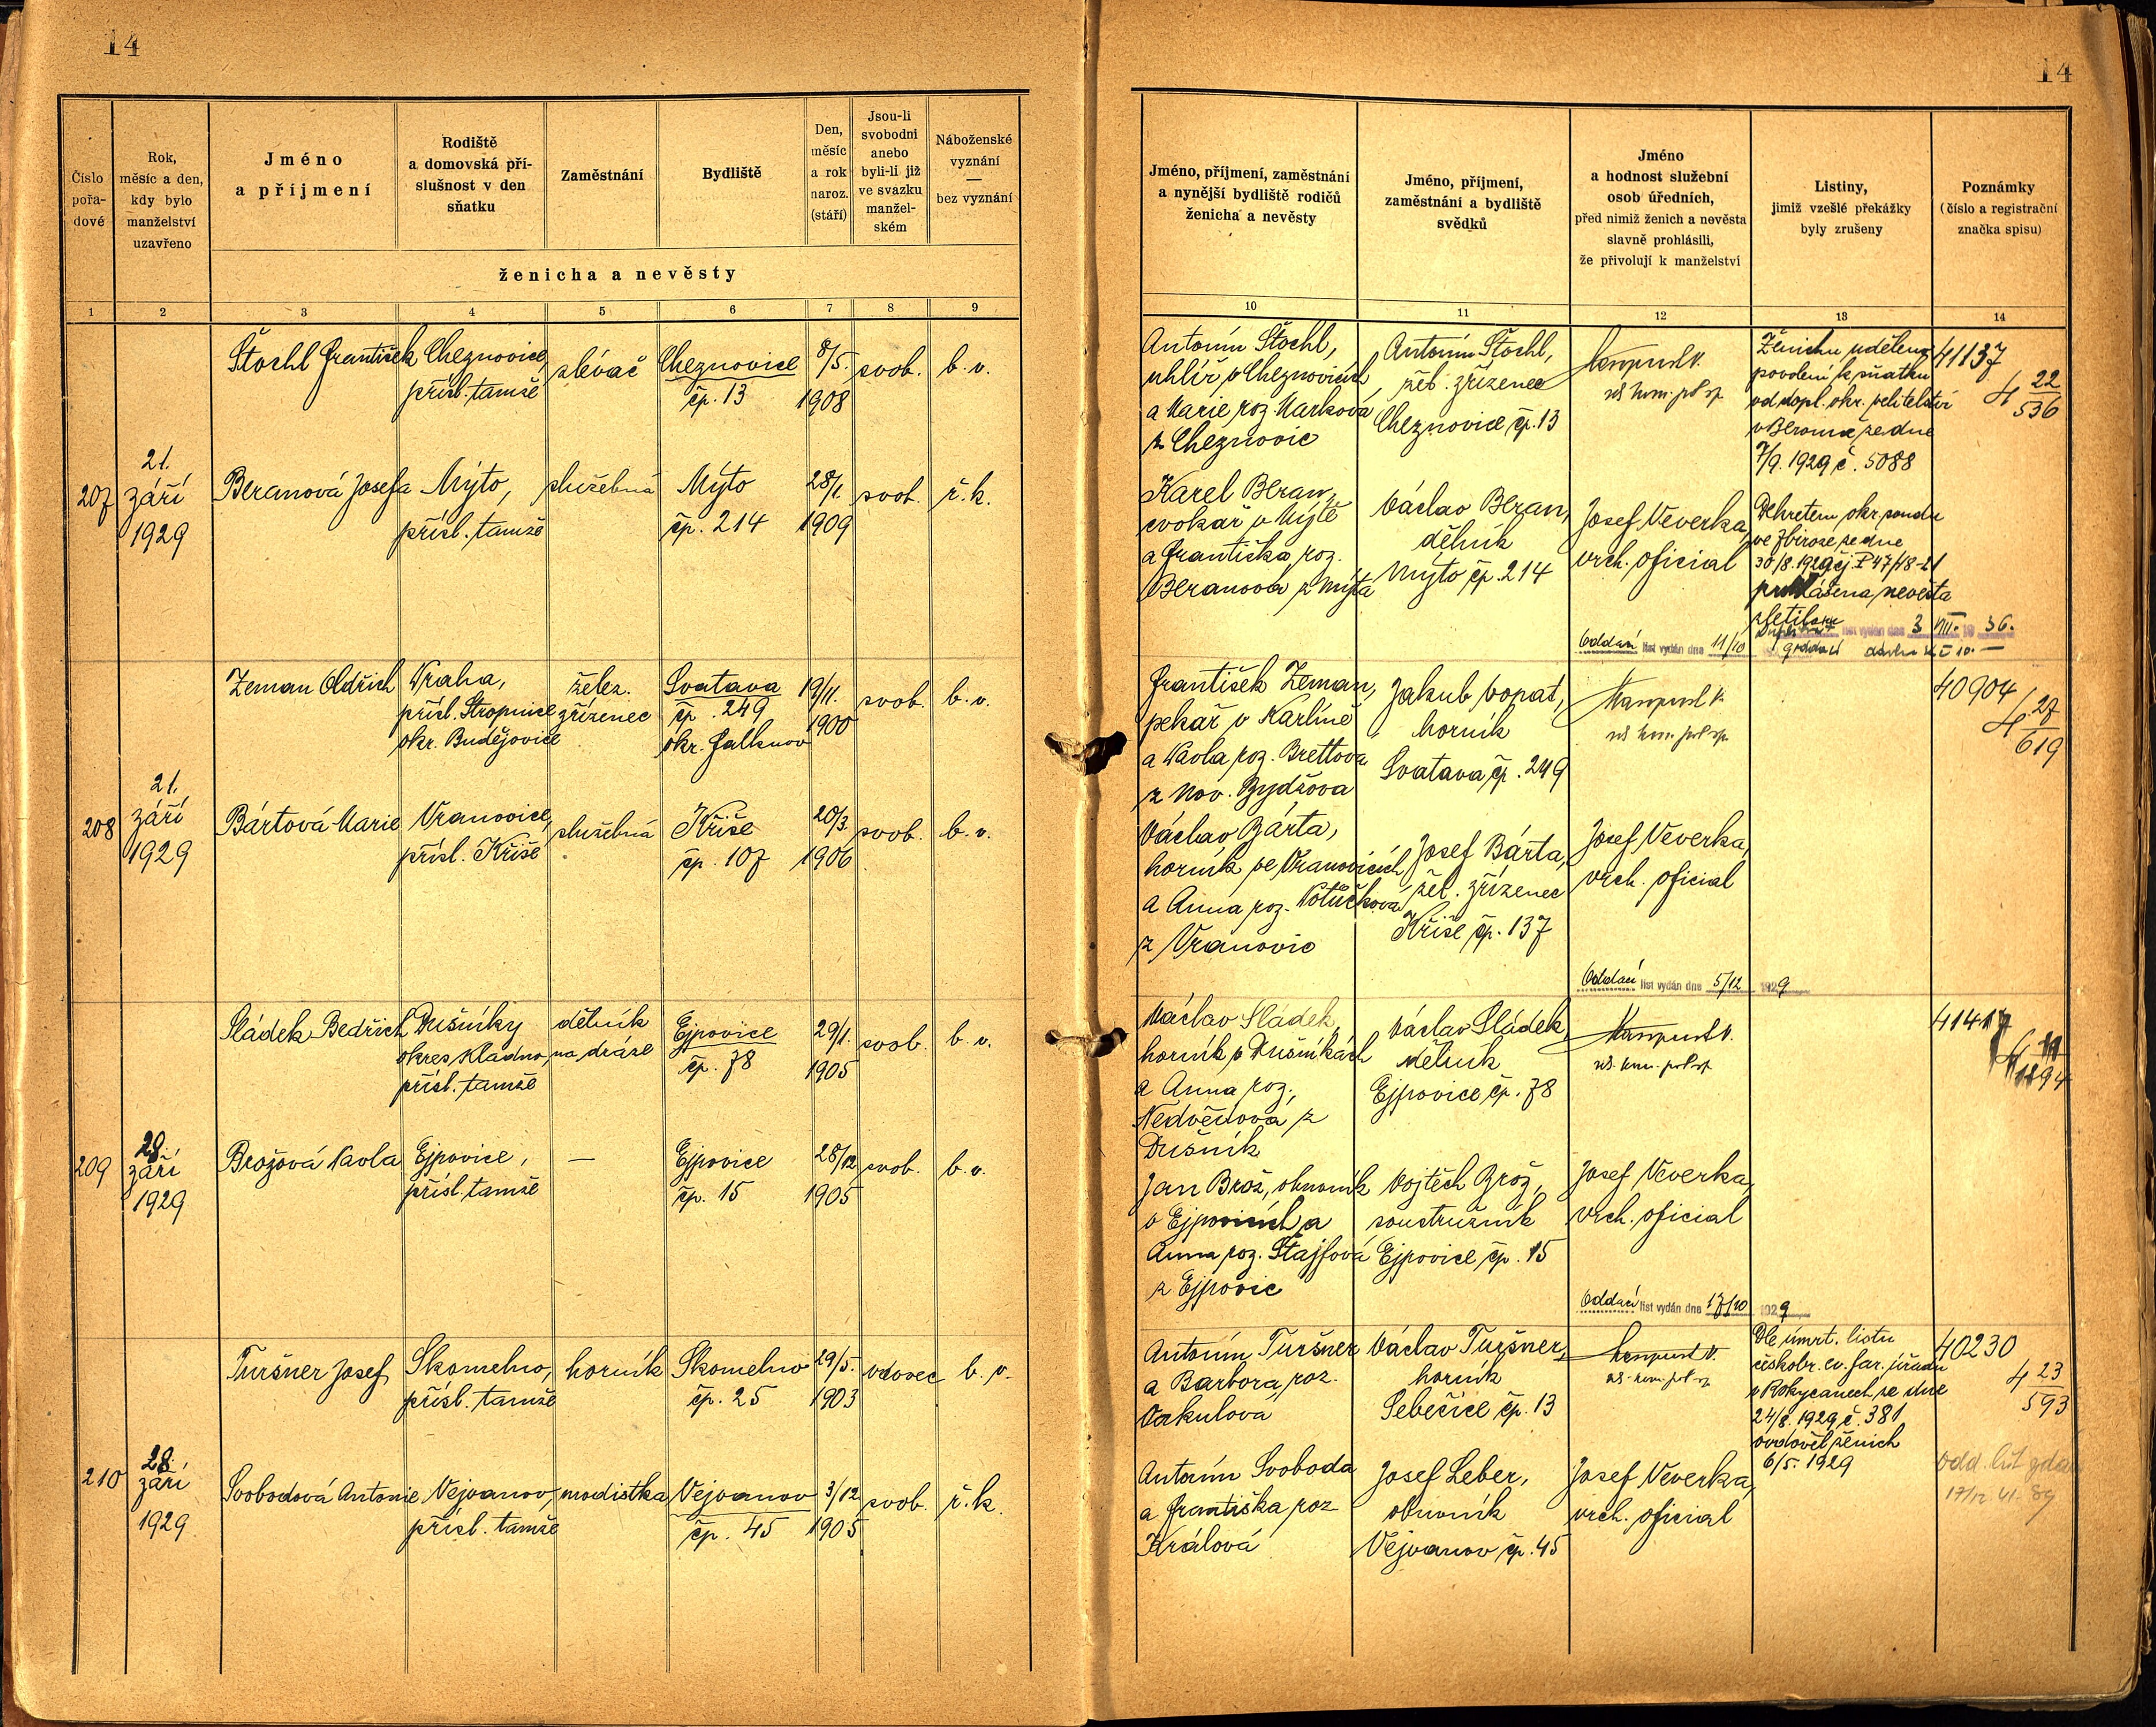 14
14
Číslo pořa-dové
Rok, měsíc a den, kdy bylo manželství uzavřeno
Jméno a příjmení
Rodiště a domovská pří-slušnost v den sňatku
Zaměstnání
Bydliště
Den, měsíc a rok naroz. (stáří)
Jsou-li svobodni anebo byli-li již ve svazku manžel-ském
Náboženské vyznání — bez vyznání
ženicha a nevěsty
1 2 3 4 5 6 7 8 9
Jméno, příjmení, zaměstnání a nynější bydliště rodičů ženicha a nevěsty
Jméno, příjmení, zaměstnání a bydliště svědků
Jméno a hodnost služební osob úředních, před nimiž ženich a nevěsta slavně prohlásili, že přivolují k manželství
Listiny, jimiž vzešlé překážky byly zrušeny
Poznámky (číslo a registrační značka spisu)
10 11 12 13 14
207
21. září 1929
Štochl František
Cheznovice, přísl. tamže
slévač
Cheznovice čp. 13
8/5. 1908
svob.
b. v.
Beranová Josefa
Mýto, přísl. tamže
služebná
Mýto čp. 214
28/1. 1909
svob.
ř. k.
Antonín Štochl,
uhlíř v Cheznovicích
a Marie roz. Marková
z Cheznovic
Karel Beran,
cvokař v Mýtě
a Františka roz.
Beranová z Mýta
Antonín Štochl,
žel. zřízenec
Cheznovice čp. 13
Václav Beran,
dělník
Mýto čp. 214
Josef Veverka,
vrch. oficial
Ženichu uděleno
povolení k sňatku
od dopl. okr. velitelství
v Berouně ze dne
7/9. 1929 č. 5088
Dekretem okr. soudu
ve Zbiroze ze dne
30/8. 1929 čj. P 47/18-21
prohlášena nevěsta
zletilou
Oddací list vydán dne 11/10
list vydán dne 3 VIII. 19 36.
41137
4 22/536
208
21. září 1929
Zeman Oldřich
Praha,
přísl. Stropnice
okr. Budějovice
želez.
zřízenec
Svatava
čp. 249
okr. Falknov
19/11. 1900
svob.
b. v.
Bártová Marie
Vranovice,
přísl. Kříše
služebná
Kříše
čp. 107
20/3. 1906
svob.
b. v.
František Zeman,
pekař v Karlíně
a Pavla roz. Brettova
z Nov. Bydžova
Václav Bárta,
horník ve Vranovicích
a Anna roz. Potůčková
z Vranovic
Jakub Vopat,
horník
Svatava čp. 249
Josef Bárta,
žel. zřízenec
Kříše čp. 137
Josef Veverka,
vrch. oficial
Oddací list vydán dne 5/12 1929
40904
4 27/619
209
28. září 1929
Sládek Bedřich
Dušníky
okres Kladno,
přísl. tamže
dělník
na dráze
Ejpovice
čp. 78
29/1. 1905
svob.
b. v.
Brožová Pavla
Ejpovice,
přísl. tamže
—
Ejpovice
čp. 15
28/12 1905
svob.
b. v.
Václav Sládek,
horník v Dušníkách
a Anna roz.
Nedvědova z
Dušník
Jan Brož, obuvník
v Ejpovicích a
Anna roz. Štajfová
z Ejpovic
Václav Sládek,
dělník
Ejpovice čp. 78
Vojtěch Brož,
soustružník
Ejpovice čp. 15
Josef Veverka,
vrch. oficial
Oddací list vydán dne 17/10 1929
41417
210
28. září 1929
Turšner Josef
Skomelno,
přísl. tamže
horník
Skomelno
čp. 25
29/5. 1903
vdovec
b. v.
Svobodová Antonie
Vejvanov,
přísl. tamže
modistka
Vejvanov
čp. 45
3/12 1905
svob.
ř. k.
Antonín Turšner
a Barbora roz.
Vakulova
Antonín Svoboda
a Františka roz
Králová
Václav Turšner,
horník
Sebečice čp. 13
Josef Leber,
obuvník
Vejvanov čp. 45
Josef Veverka,
vrch. oficial
Dle úmrt. listu
českobr. ev. far. úřadu
v Rokycanech ze dne
24/8. 1929 č. 381
ovdověl ženich
6/5. 1929
40230
4 23/593